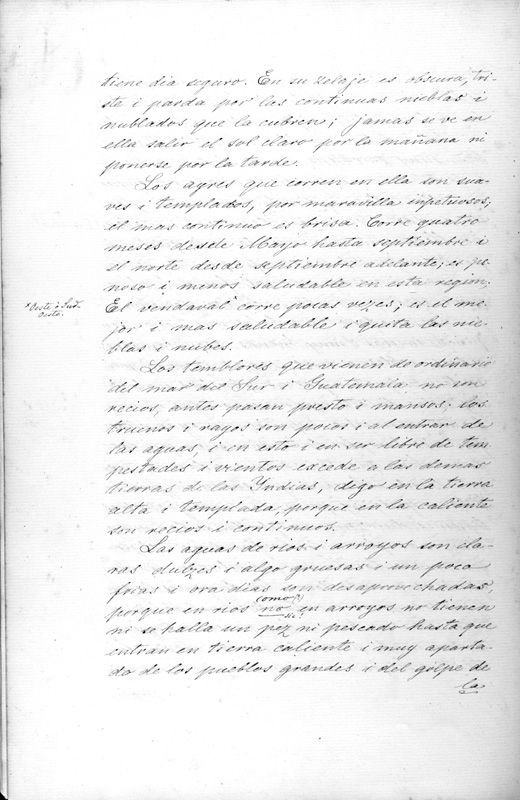 tiene dia seguro. En su zelaje es obscura, tri-
ste i parda por las continuas nieblas i
nublados que la cubren; jamas se ve en
ella salir el sol claro por la mañana ni
ponerse por la tarde.
Los ayres que corren en ella son sua-
ves i templados, por maravilla inpetuosos;
el mas continuo es brisa. Corre quatro
meses desde Mayo hasta septiembre i
el norte desde septiembre adelante; es pe-
noso i menos saludable en esta region.
* Oeste ó Sud-
oeste.
El vendaval* corre pocas vezes; es el me-
jor i mas saludable i quita las nie-
blas i nubes.
Los temblores que vienen de ordinario
del mar del Sur i Guatemala no son
recios, antes pasan presto i mansos; los
truenos i rayos son pocos i al entrar de
las aguas, i en esto i en ser libre de tem-
pestades i vientos excede a las demas
tierras de las Yndias, digo en la tierra
alta i templada, porque en la caliente
son recios i continuos.
Las aguas de rios i arroyos son cla-
ras dulzes i algo gruesas i un poco
frias i ora dias son desaprovechadas,
(como?)
porque en rios no en arroyos no tienen
sic?
ni se halla un pez ni pescado hasta que
entran en tierra caliente i muy aparta-
do de los pueblos grandes i del golpe de
la